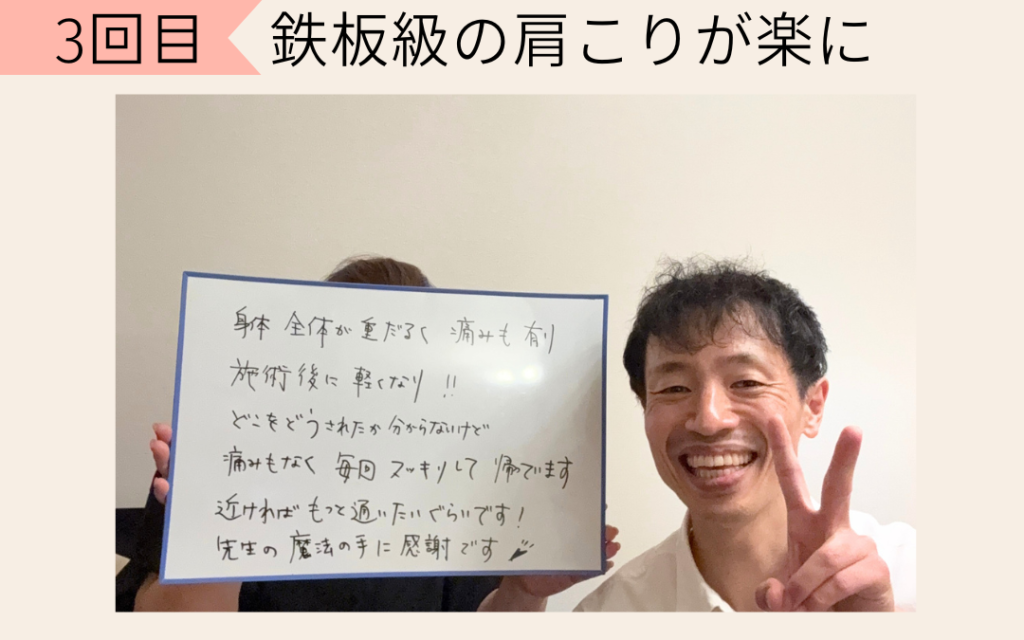 3回目
鉄板級の肩こりが楽に
身体 全体が 重だるく 痛みも 有り
施術後に 軽くなり !!
どこをどうされたか 分からないけど
痛みもなく 毎回 スッキリして 帰っています
近ければ もっと 通いたいぐらいです!
先生の 魔法の手に 感謝です